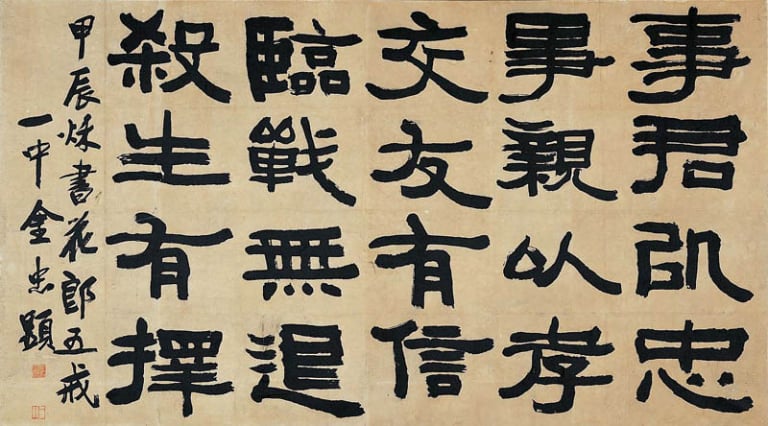 事君以忠
事親以孝
交友有信
臨戰無退
殺生有擇
甲辰秌書花郎五戒
一中金忠顯